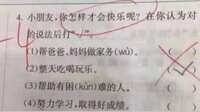 4. 小朋友,你怎样才会快乐呢?在你认为对
的说法后打“√”。
(1)帮爸爸、妈妈做家务(wù)。 ( )
(2)整天吃喝玩乐。 (√)
(3)帮助有困(kùn)难的人。 ( )
(4)努力学习,取得好成绩。